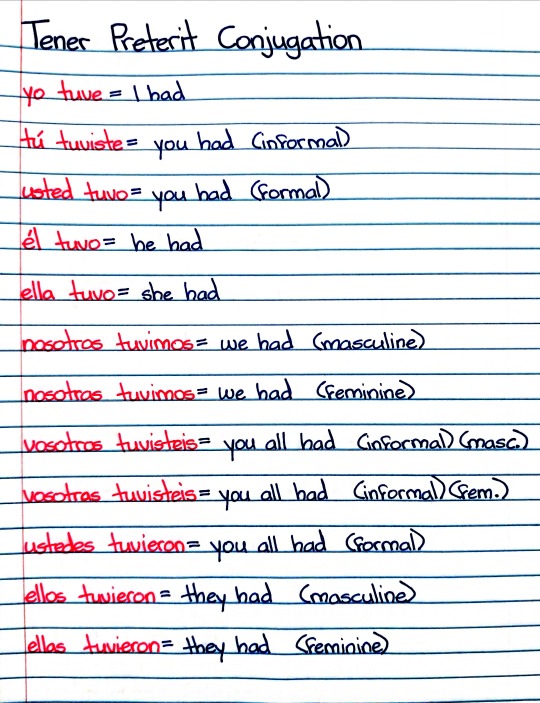 Tener Preterit Conjugation
yo tuve = I had
tú tuviste = you had (informal)
usted tuvo = you had (formal)
él tuvo = he had
ella tuvo = she had
nosotros tuvimos = we had (masculine)
nosotras tuvimos = we had (feminine)
vosotros tuvisteis = you all had (informal) (masc.)
vosotras tuvisteis = you all had (informal) (fem.)
ustedes tuvieron = you all had (formal)
ellos tuvieron = they had (masculine)
ellas tuvieron = they had (feminine)